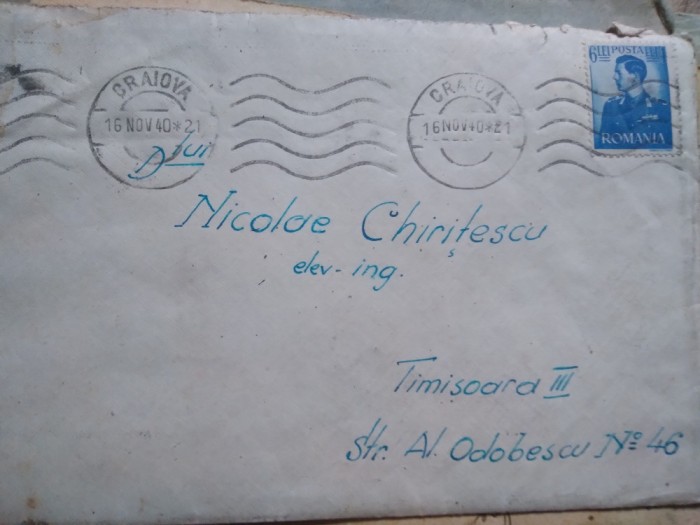 CRAIOVA
16 NOV 40*21
CRAIOVA
16 NOV 40*21
6 LEI POSTA LEI 6
ROMANIA
Dlui
Nicolae Chirițescu
elev-ing.
Timișoara III
Str. Al. Odobescu No 46